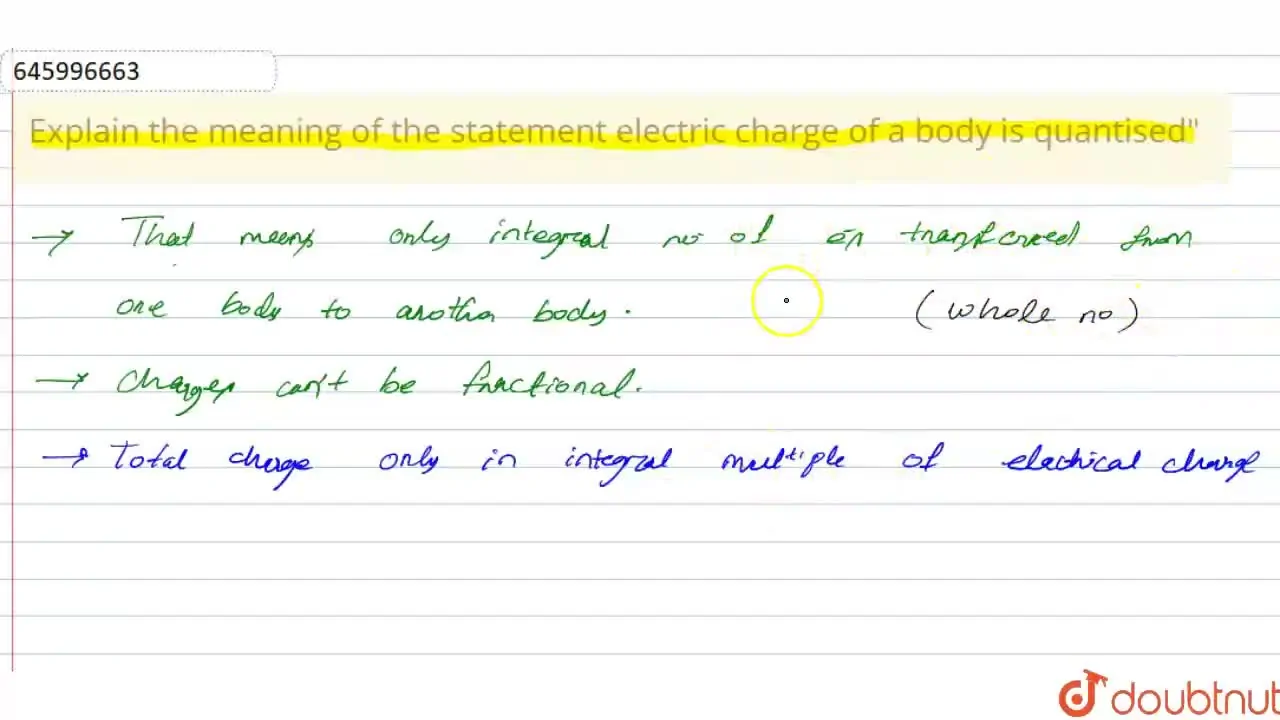 645996663
Explain the meaning of the statement electric charge of a body is quantised"
→ That means only integral no of transferred from
one body to another body. (whole no)
→ Charges can't be fractional.
→ Total charge only in integral multiple of electrical charge
doubtnut